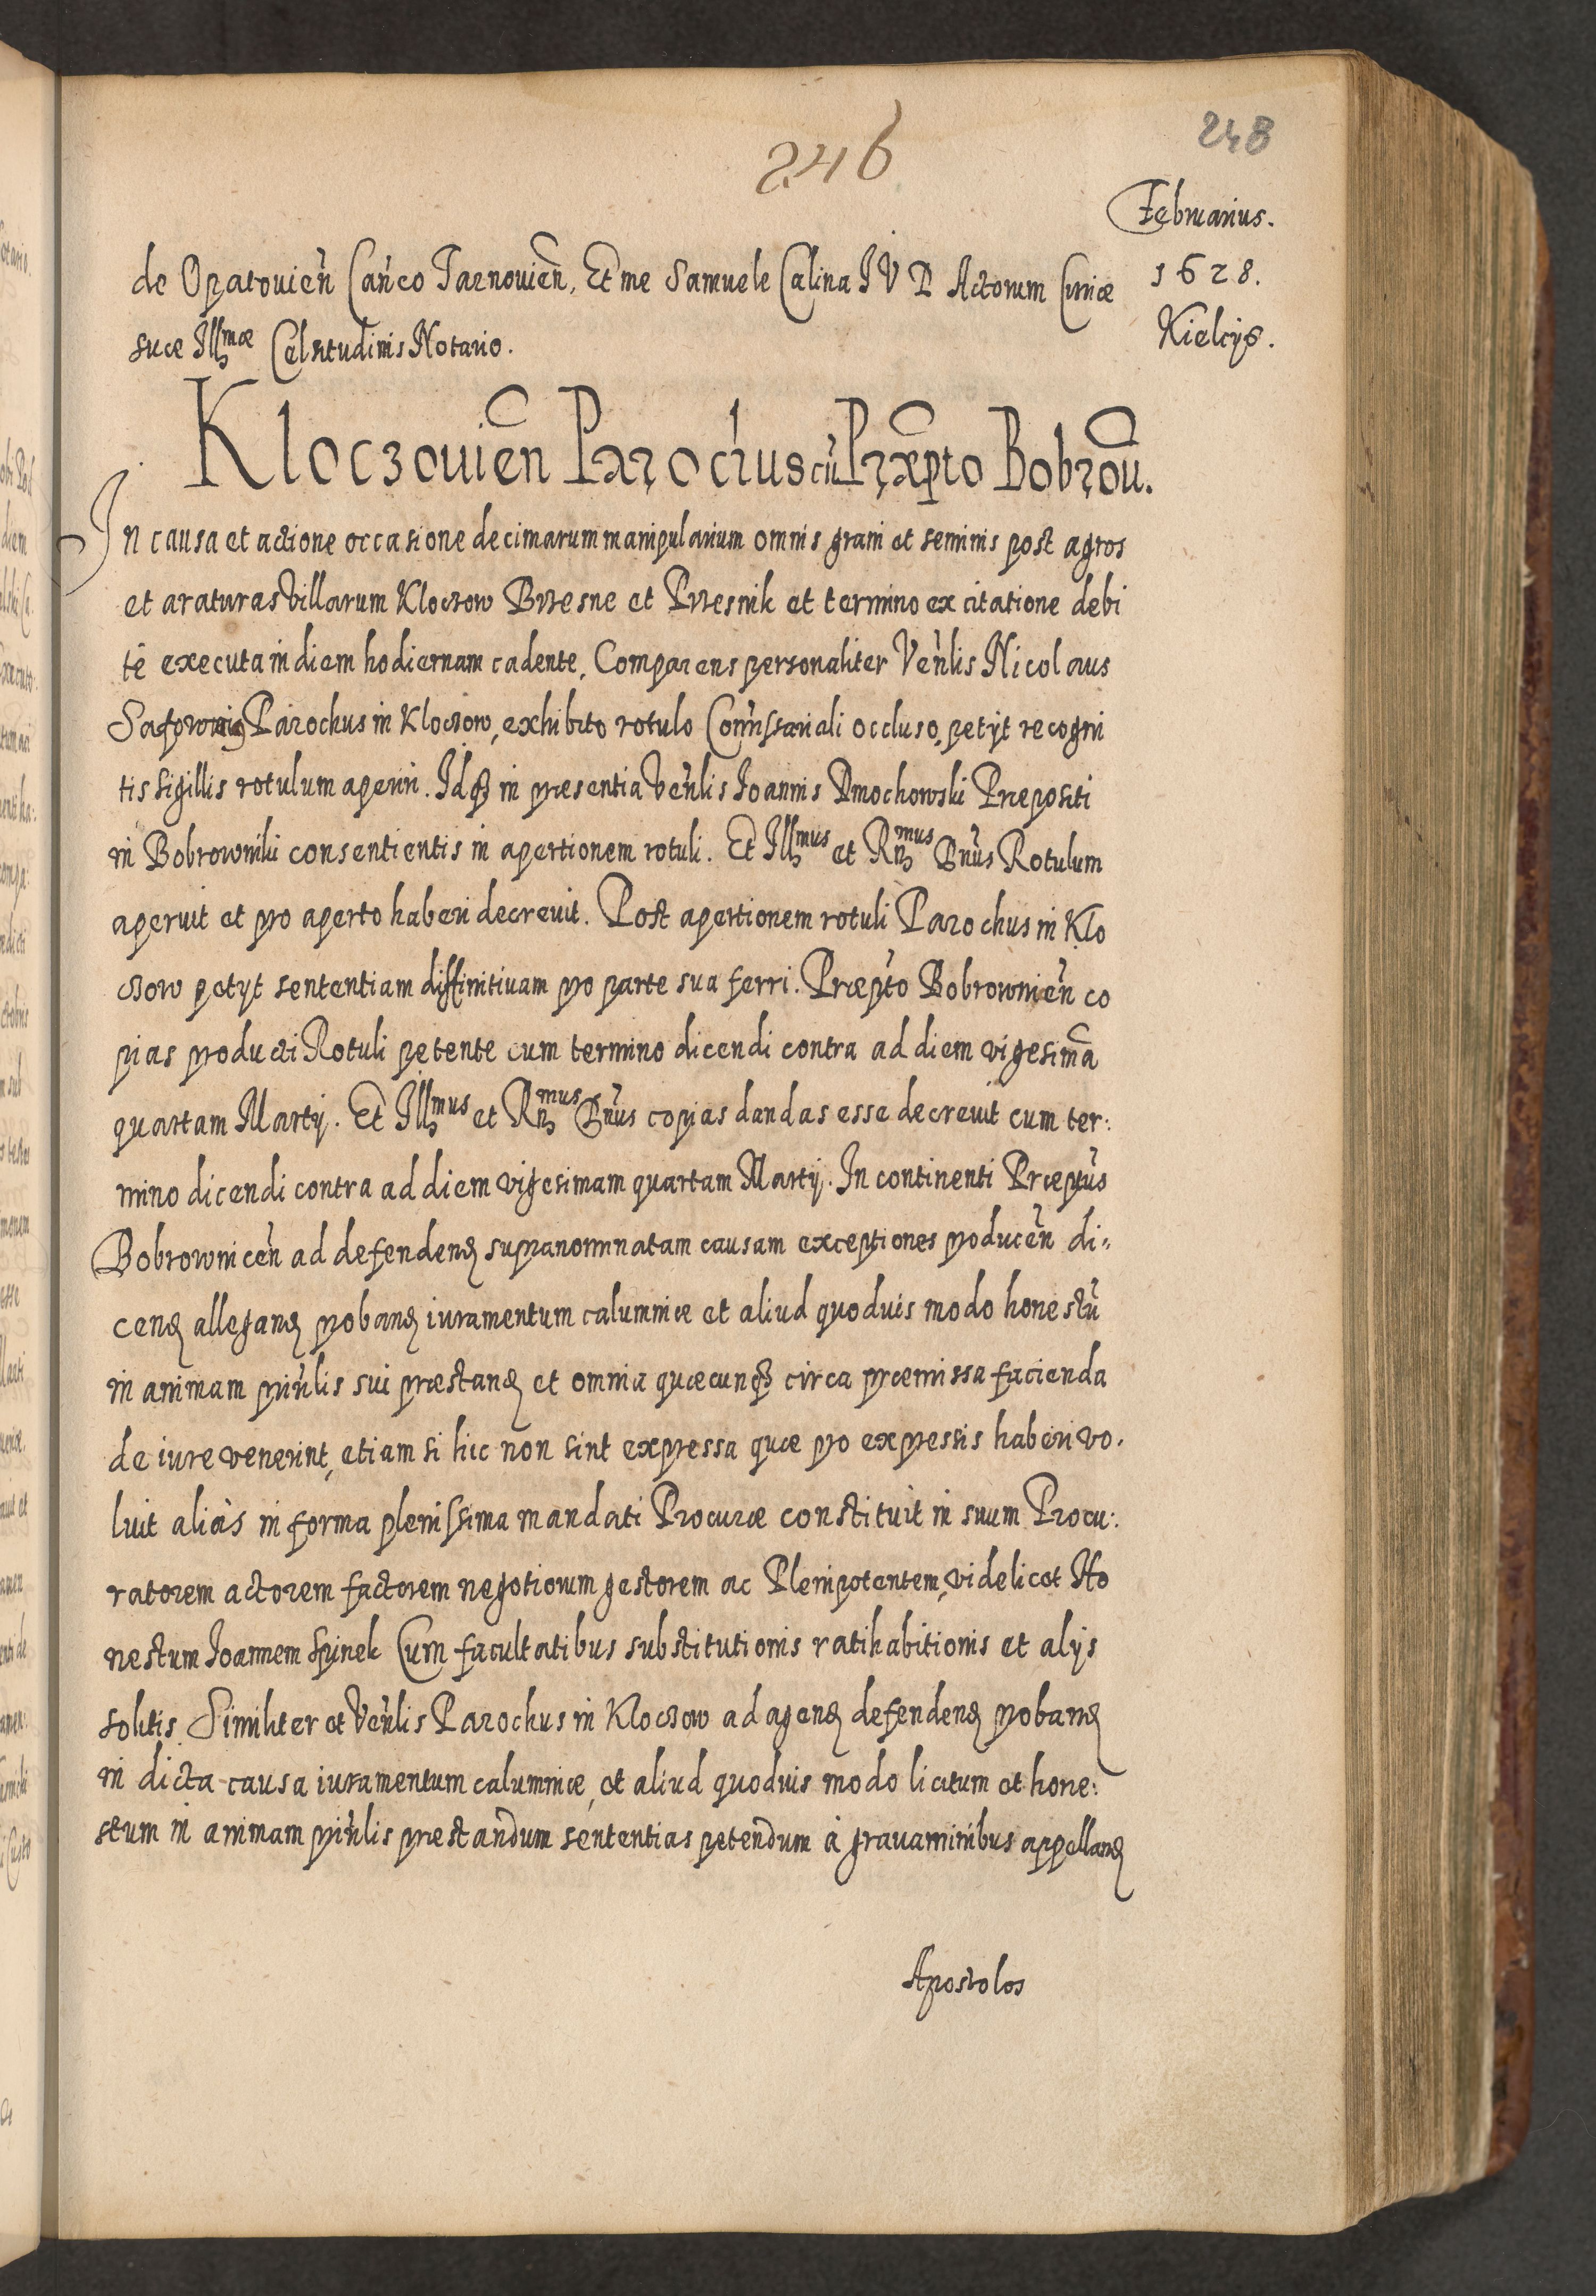 246
248
Februarius.
1628.
Kielcijs.
de Opatouien̄ Can̄co Tarnouien̄. Et me Samuele Calina I V D Actorum Curiæ
suæ Illmæ Celsitudinis Notario.
Kloczouien̄ Parochus cū Præpto Bobrou̅.
In causa et actione occasione decimarum manipularium omnis grani et seminis post agros
et araturas Villarum Kloczow Brzesne et Przesnik et termino ex citatione debi
tē executa in diem hodiernam cadente, Comparens personaliter Ven̄lis Nicolaus
Parochus in Kloczow, exhibito rotulo Com̄issariali occluso, petijt recogni
tis sigillis rotulum aperiri. Idq3 in præsentia Ven̄lis Ioannis Dmochowski Præpositi
in Bobrowniki consentientis in apertionem rotuli. Et Illmus et Rn̄mus Dn̄us Rotulum
aperuit et pro aperto haberi decreuit. Post apertionem rotuli Parochus in Klo
czow petyt sententiam diffinitiuam pro parte sua ferri. Præpto Bobrownien̄ co
pias producti Rotuli petente cum termino dicendi contra ad diem vigesimā
quartam Martij. Et Illmus et Rn̄mus Dn̄us copias dandas esse decreuit cum ter:
mino dicendi contra ad diem vigesimam quartam Martij. In continenti Præptus
Bobrownicen̄ ad defenden̄ supranominatam causam exceptiones producen̄ di=
cen̄ allegan̄ proban̄ iuramentum calumniæ et aliud quoduis modo honestū
in animam prin̄lis sui præstan̄ et omnia quæcunq3 circa præmissa facienda
de iure venerint, etiam si hic non sint expressa quæ pro expressis haberi vo.
luit aliàs in forma plenissima mandati Procuræ constituit in suum Procu:
ratorem actorem factorem negotiorum gestorem ac Plenipotentem, videlicet Ho
nestum Ioannem Spinek Cum facultatibus substitutionis ratihabitionis et alijs
solitis. Similiter et Ven̄lis Parochus in Kloczow ad agen̄ defenden̄ proban̄
in dicta causa iuramentum calumniæ, et aliud quoduis modo licitum et hone:
stum in animam prin̄lis præstandum sententias petendum à grauaminibus appellan̄
Apostolos